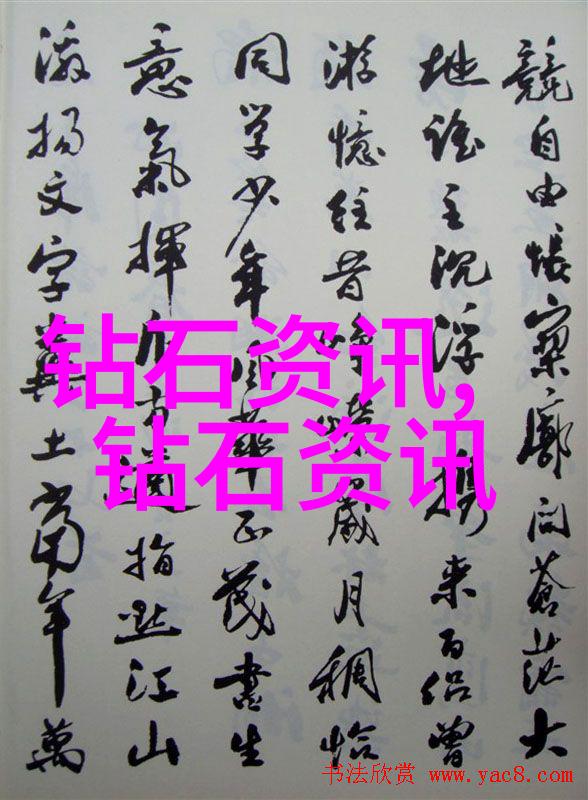 競自由悵寥廓问蒼茫大
地誰主沉浮携来百侣曾
游憶往昔崢嶸歲月稠恰
同学少年風華正茂書生
意氣揮斥方遒指點江山
激揚文字糞土當年萬
钻石资讯,
钻石资讯
书法欣赏 www.yac8.com